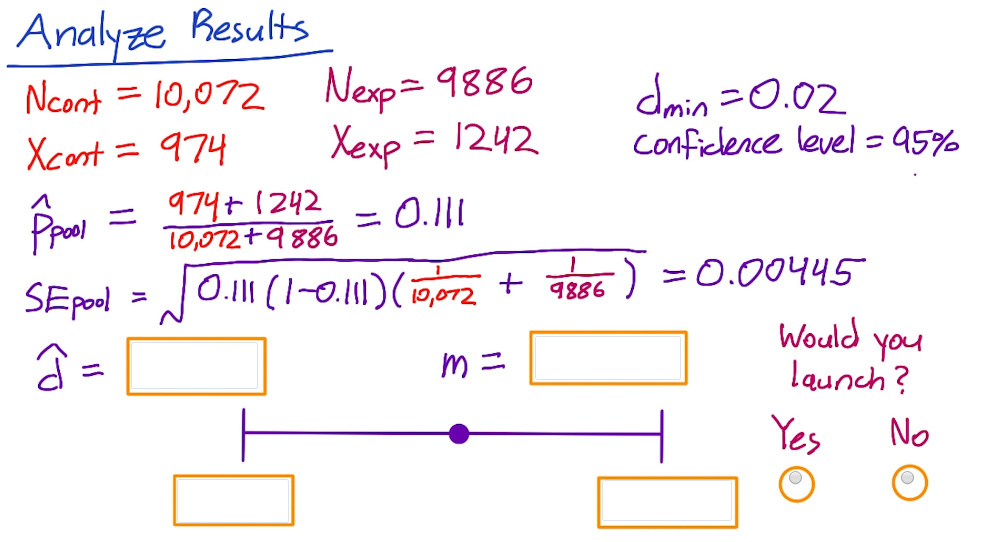 Analyze Results
Ncont = 10,072 Nexp = 9886 dmin = 0.02
Xcont = 974 Xexp = 1242 confidence level = 95%
p̂pool = (974 + 1242)/(10,072 + 9886) = 0.111
SEpool = √(0.111 (1-0.111)(1/10,072 + 1/9886)) = 0.00445
d̂ = m = Would you
launch?
Yes No